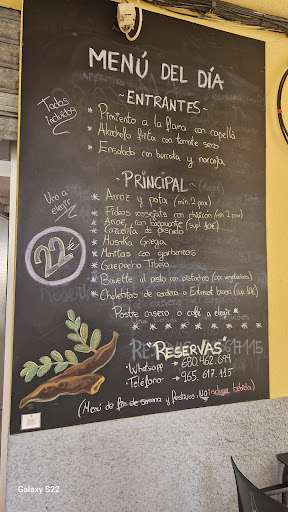 MENÚ DEL DÍA
- ENTRANTES -
Todos incluidos
* Pimiento a la flama con capellà
* Alcachofa frita con tomate seco
* Ensalada con burrata y naranja
- PRINCIPAL -
Uno a elegir
22€
* Arroz y pata (min. 2 pax)
* Fideos rossejats con chipirón (min. 2 pax)
* Arroz con
* Cazuelita de pescado
* Musaka Griega
* Manitas con garbanzos
* Gazpacho
* Bavette al pesto con pistachos (op. vegetariana)
* Chuletitas de cordero o Entrecot
Postre casero o café a elegir *
"RESERVAS"
- Whatsapp → 680.462.699
- Teléfono → 965.617.115
(Menú de fin de semana y Festivos. No incluye bebida)
Galaxy S22